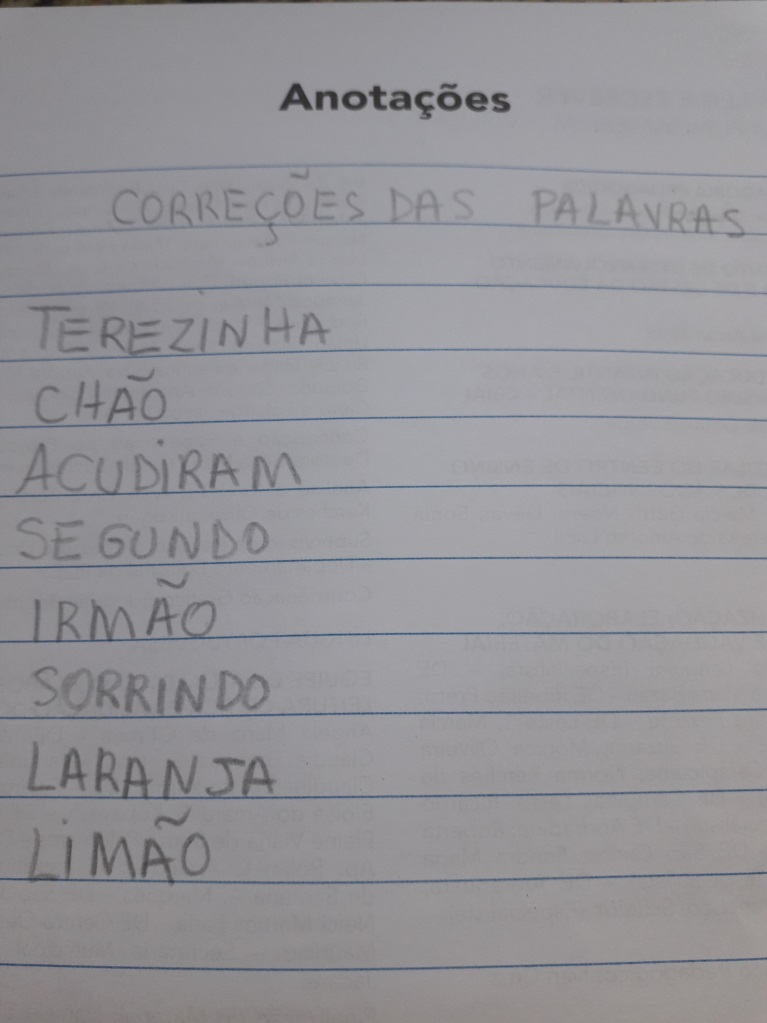 Anotações
CORREÇÕES DAS PALAVRAS
TEREZINHA
CHÃO
ACUDIRAM
SEGUNDO
IRMÃO
SORRINDO
LARANJA
LIMÃO